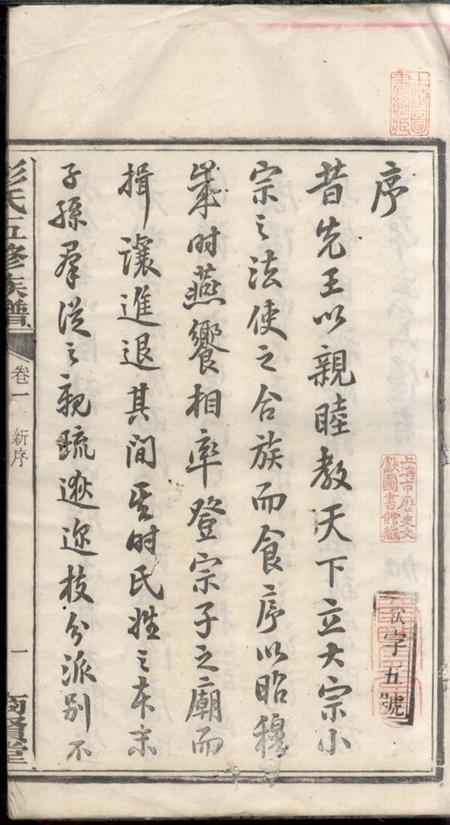 序
昔先王以親睦教天下立大宗小
宗之法使之合族而食序以昭穆
歲時燕饗相率登宗子之廟而
揖讓進退其間爾時氏姓之本末
子孫羣從之親疏逖邇枝分派別不
彭氏五修族譜
卷一
新序
一
商賢堂
字五號
上海圖書館藏
上海市歷史文
獻圖書館藏